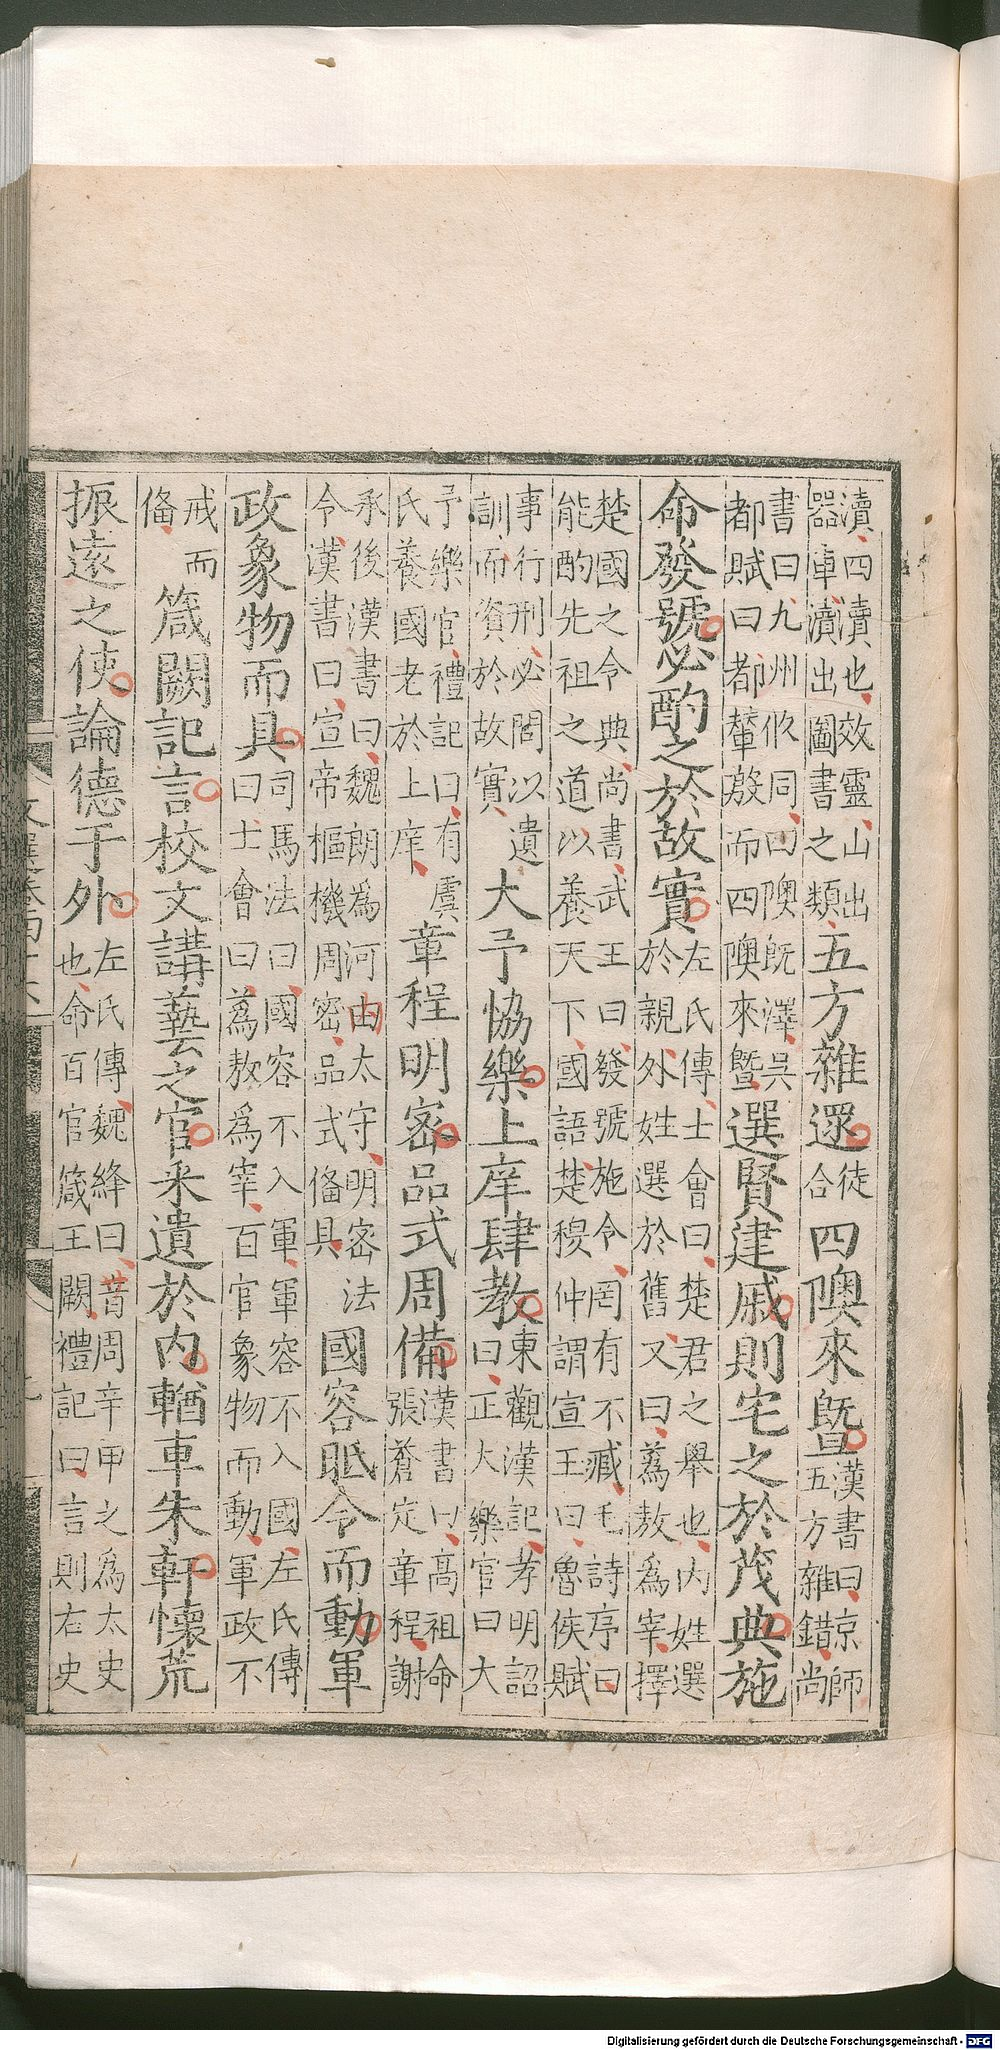 瀆四瀆也效靈山出
器車瀆出圖書之類五方雜遝徒合四隩來曁漢書曰京師
五方雜錯尚
書曰九州攸同四隩既澤吳
都賦曰都輦殷而四隩來曁選賢建戚則宅之於茂典施
命發號必酌之於故實左氏傳士會曰楚君之舉也内姓選
於親外姓選於舊又曰蒍敖爲宰擇
楚國之令典尚書武王曰發號施令罔有不臧毛詩序曰
能酌先祖之道以養天下國語楚穆仲謂宣王曰魯侯賦
事行刑必問以遺
訓而資於故實大予協樂上庠肆教東觀漢記孝明詔
曰正大樂官曰大
予樂官禮記曰有虞
氏養國老於上庠章程明密品式周備漢書曰高祖命
張蒼定章程謝
承後漢書曰魏朗爲河由太守明密法
令漢書曰宣帝樞機周密品式俻具國容眡令而動軍
政象物而具司馬法曰國容不入軍軍容不入國左氏傳
曰士會曰蒍敖爲宰百官象物而動軍政不
戒而
俻箴闕記言校文講藝之官采遺於内輶車朱軒懷荒
振遠之使論德于外左氏傳魏絳曰昔周辛甲之爲太史
也命百官箴王闕禮記曰言則右史
Digitalisierung gefördert durch die Deutsche Forschungsgemeinschaft - DFG